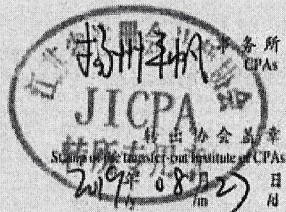 扬州年帆 事务所
CPAs
JICPA
转所专用章
转出协会盖章
Stamp of the transfer-out Institute of CPAs
2019年 08月 27日
/y /m /d